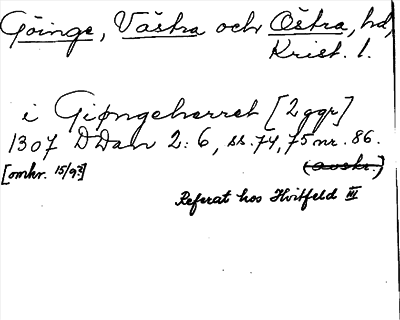 Göinge, Västra och Östra, hd,
Krist. l.
i Giøngeherret [2 ggr]
1307 DDan 2: 6, ss. 74, 75 nr. 86.
[omkr. 15/9?] (avskr.)
Referat hos Hvitfeld III